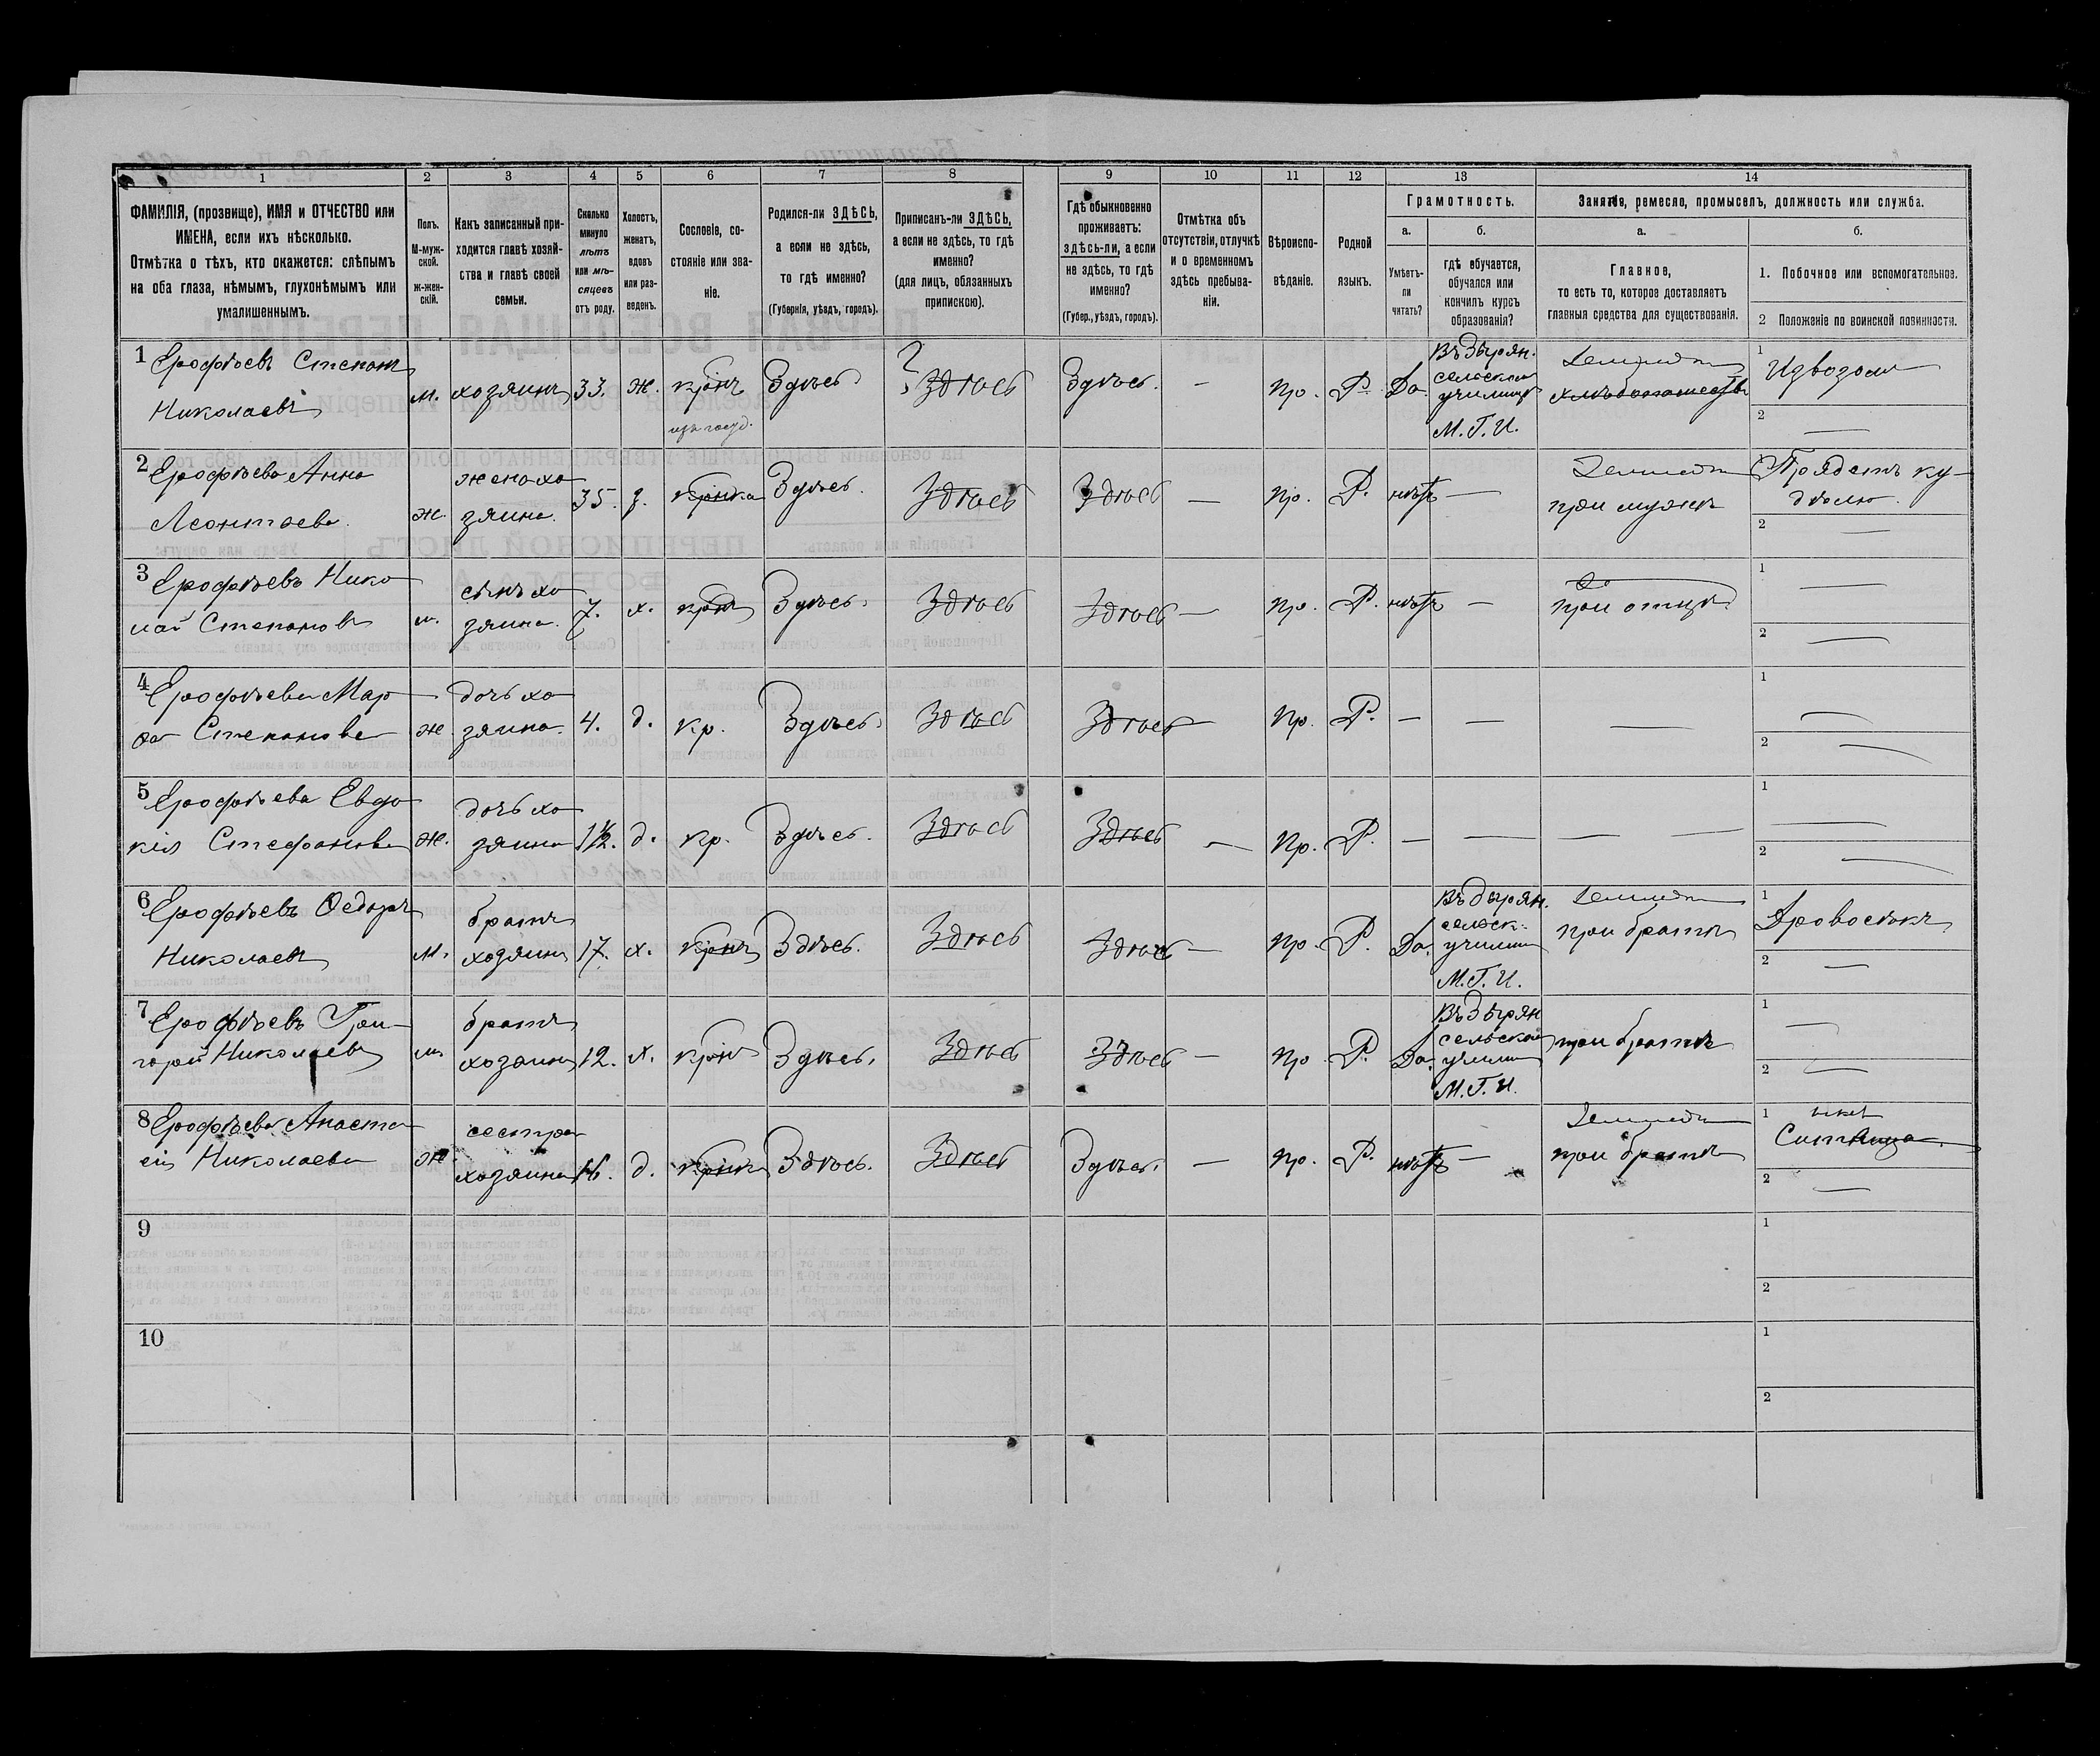 1 2 3 4 5 6 7 8 9 10 11 12 13 14
ФАМИЛІЯ, (прозвище), ИМЯ и ОТЧЕСТВО или
ИМЕНА, если ихъ нѣсколько.
Отмѣтка о тѣхъ, кто окажется: слѣпымъ
на оба глаза, нѣмымъ, глухонѣмымъ или
умалишеннымъ.
Полъ.
М-муж-
ской.
ж-жен-
скій.
Какъ записанный при-
ходится главѣ хозяй-
ства и главѣ своей
семьи.
Сколько
минуло
лѣтъ
или мѣ-
сяцевъ
отъ роду.
Холостъ,
женатъ,
вдовъ
или раз-
веденъ.
Сословіе, со-
стояніе или зва-
ніе.
Родился-ли ЗДѢСЬ,
а если не здѣсь,
то гдѣ именно?
(Губернія, уѣздъ, городъ).
Приписанъ-ли ЗДѢСЬ,
а если не здѣсь, то гдѣ
именно?
(для лицъ, обязанныхъ
припискою).
Гдѣ обыкновенно
проживаетъ:
здѣсь-ли, а если
не здѣсь, то гдѣ
именно?
(Губер., уѣздъ, городъ).
Отмѣтка объ
отсутствіи, отлучкѣ
и о временномъ
здѣсь пребыва-
ніи.
Вѣроиспо-
вѣданіе.
Родной
языкъ.
Грамотность.
а.
Умѣетъ-
ли
читать?
б.
гдѣ обучается,
обучался или
кончилъ курсъ
образованія?
Занятіе, ремесло, промыселъ, должность или служба.
а.
Главное,
то есть то, которое доставляетъ
главныя средства для существованія.
б.
1. Побочное или вспомогательное.
2 Положеніе по воинской повинности.
1 Ерофѣевъ Степанъ
Николаевъ
м. хозяинъ 33. ж. кр-нъ
изъ госуд.
Здѣсь Здѣсь Здѣсь. — пр. Р. Да
Въ Зырян.
сельском
училищѣ
М.Г.И.
хлѣбопашество
1 Извозом
2 —
2 Ерофѣева Анна
Леонтьева.
ж. жена хо
зяина.
35. з. кр-нка Здѣсь. Здѣсь Здѣсь — пр. Р. нѣтъ —
при мужѣ
Прядетъ ку-
дѣлю.
2 —
3 Ерофѣевъ Нико
лай Степановъ
м. сынъ хо
зяина.
7. х. кр-нъ Здѣсь. Здѣсь Здѣсь — пр. Р. нѣтъ —
при отцѣ
1 —
2 —
4 Ерофѣева Мар
ѳа Степанова
ж. дочь хо
зяина.
4. д. кр. Здѣсь. Здѣсь Здѣсь — пр. Р. — — —
1 —
2 —
5 Ерофѣева Евдо
кія Стефанова
ж. дочь хо
зяина
1½. д. кр. Здѣсь. Здѣсь Здѣсь — пр. Р. — — — —
1 —
2 —
6 Ерофѣевъ Ѳедоръ
Николаевъ
м. братъ
хозяина
17. х. кр-нъ Здѣсь. Здѣсь Здѣсь — пр. Р. Да.
Въ Зырян.
сельск.
училищ
М.Г.И.
при братѣ
1 Дровосѣкъ
2 —
7 Ерофѣевъ Гри-
горій Николаевъ
м. братъ
хозяина
12. х. кр-нъ Здѣсь. Здѣсь Здѣсь — пр. Р. Да.
Въ Зырян
сельском
училищ
М.Г.И.
при братѣ
1 —
2 —
8 Ерофѣева Анаста
сія Николаева
ж. сестра
хозяина
16. д. кр-нка Здѣсь. Здѣсь Здѣсь. — пр. Р. нѣтъ —
при братѣ
1
2 —
9
1
2
10
1
2